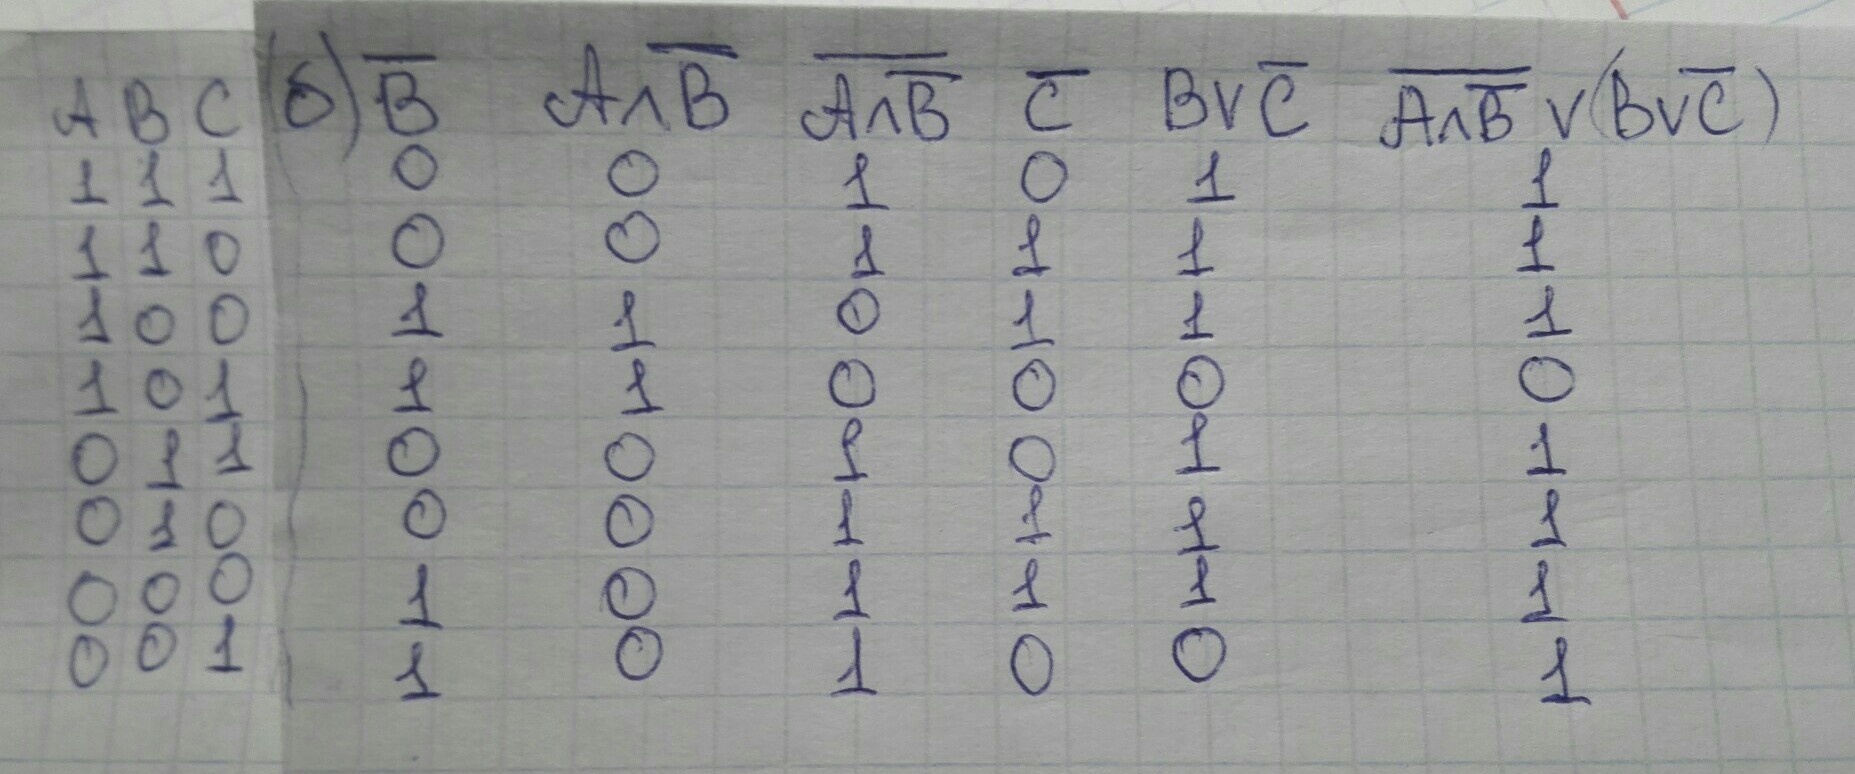 A B C (б) B̅ A∧B̅ A∧B̅̅ C̅ B∨C̅ A∧B̅̅ ∨ (B∨C̅)
1 1 1 0 0 1 0 1 1
1 1 0 0 0 1 1 1 1
1 0 0 1 1 0 1 1 1
1 0 1 1 1 0 0 0 0
0 1 1 0 0 1 0 1 1
0 1 0 0 0 1 1 1 1
0 0 0 1 0 1 1 1 1
0 0 1 1 0 1 0 0 1